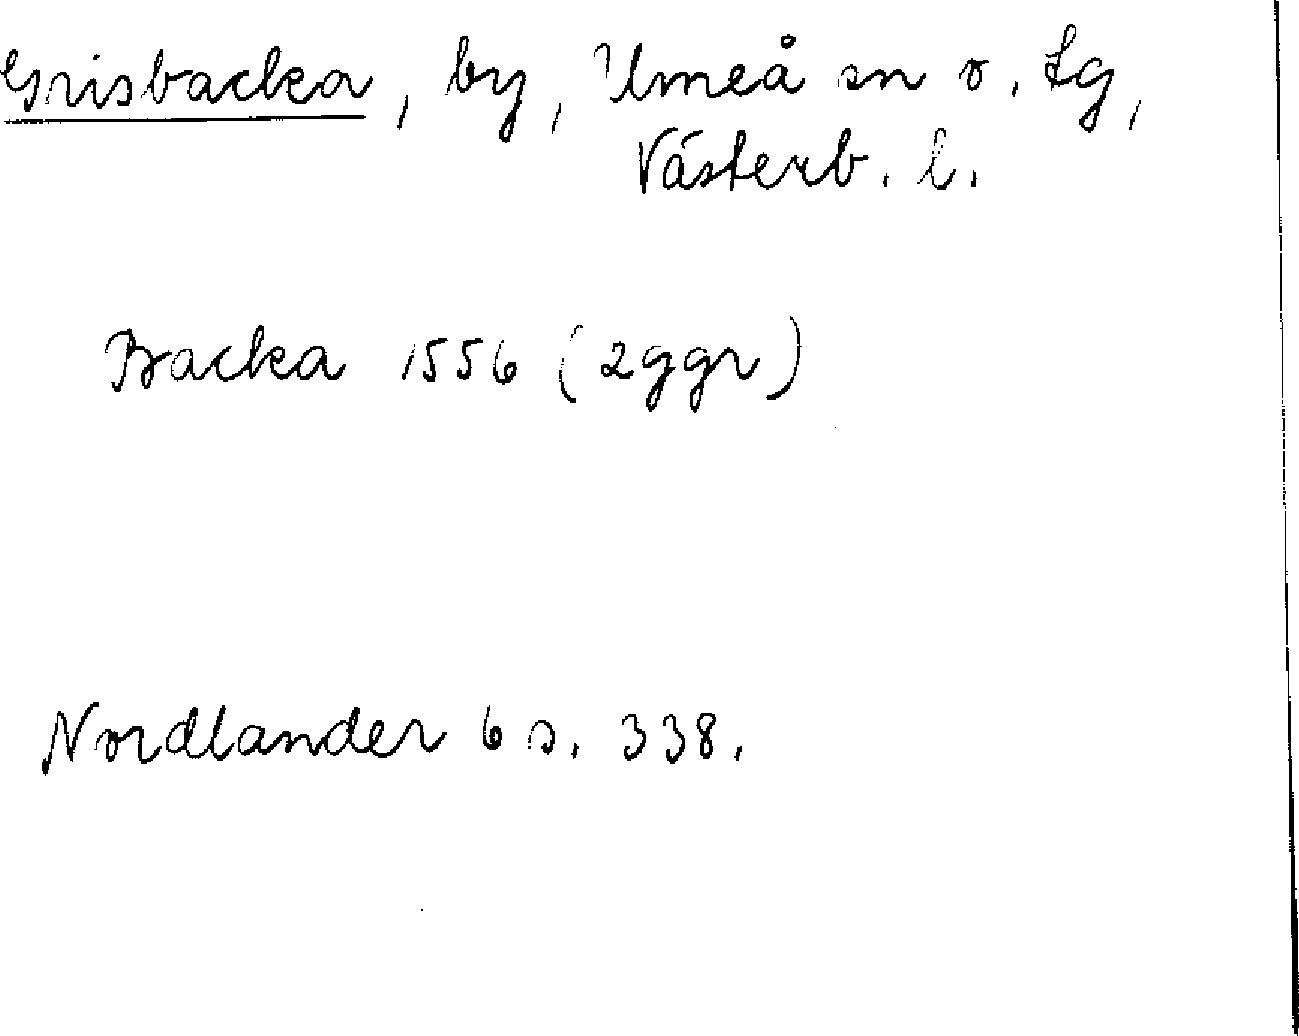 Grisbacka, by, Umeå sn o. tg,
Västerb. l.
Backa 1556 (2ggr)
Nordlander 6 s. 338.